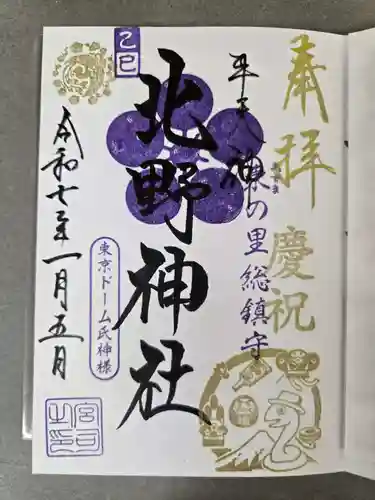 奉拝 慶祝
牛天神
の里総鎮守
北野神社
乙巳
東京ドーム氏神様
令和七年一月五日
宮司之印